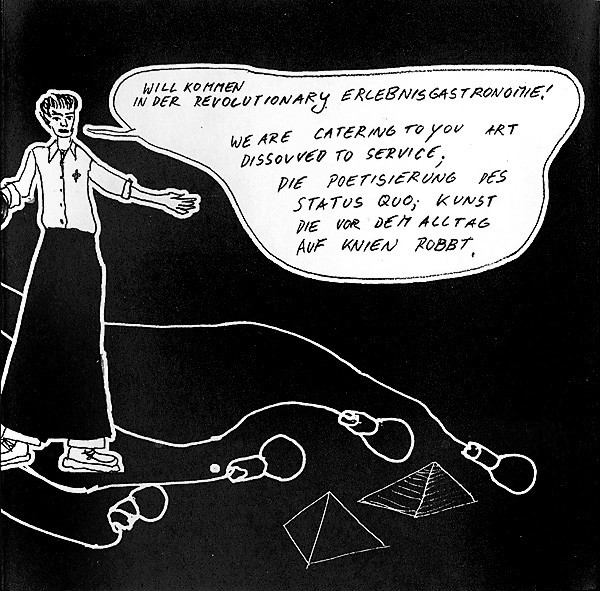 WILLKOMMEN
IN DER REVOLUTIONARY ERLEBNISGASTRONOMIE!
WE ARE CATERING TO YOU ART
DISSOLVED TO SERVICE,
DIE POETISIERUNG DES
STATUS QUO; KUNST
DIE VOR DEM ALLTAG
AUF KNIEN ROBBT.